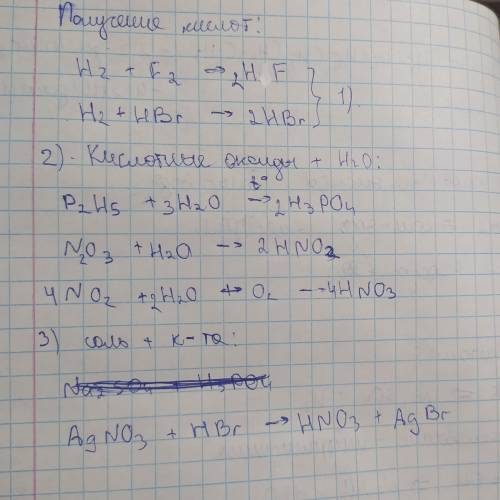 Получение кислот:
H2 + F2 → 2HF
H2 + HBr → 2HBr } 1).
2). Кислотные оксиды + H2O:
P2H5 + 3H2O t°→ 2H3PO4
N2O3 + H2O → 2HNO2
4NO2 + 2H2O + O2 → 4HNO3
3) соль + к-та:
AgNO3 + HBr → HNO3 + AgBr